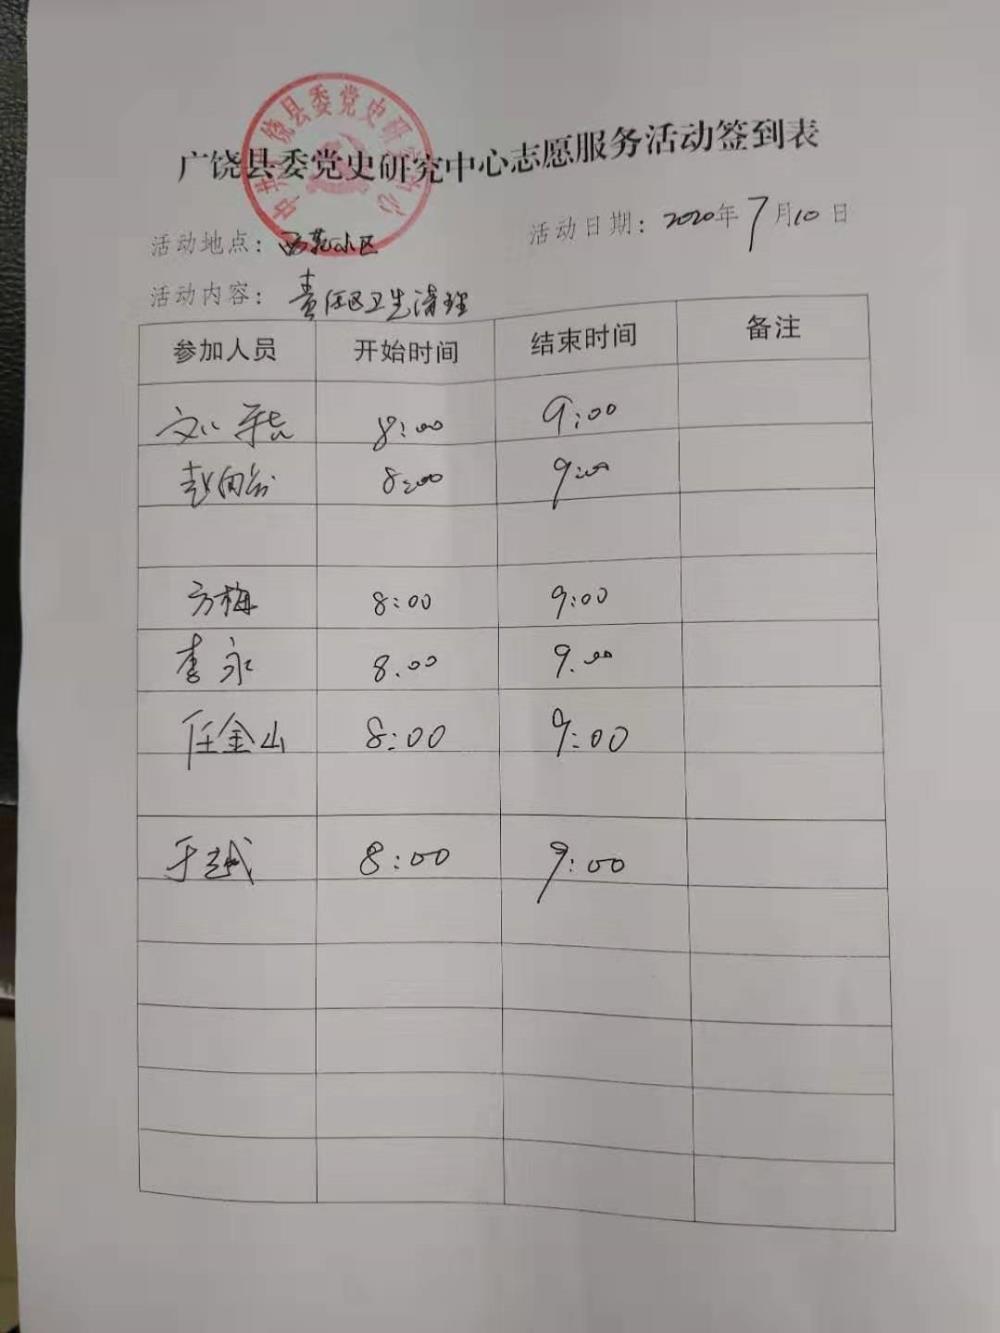 中共广饶县委党史研究中心
广饶县委党史研究中心志愿服务活动签到表
活动地点：西苑小区 活动日期：2020年7月10日
活动内容：责任区卫生清理
参加人员 开始时间 结束时间 备注
刘 8:00 9:00
赵 8:00 9:00
方梅 8:00 9:00
李永 8.00 9.00
任金山 8:00 9:00
于越 8:00 9:00